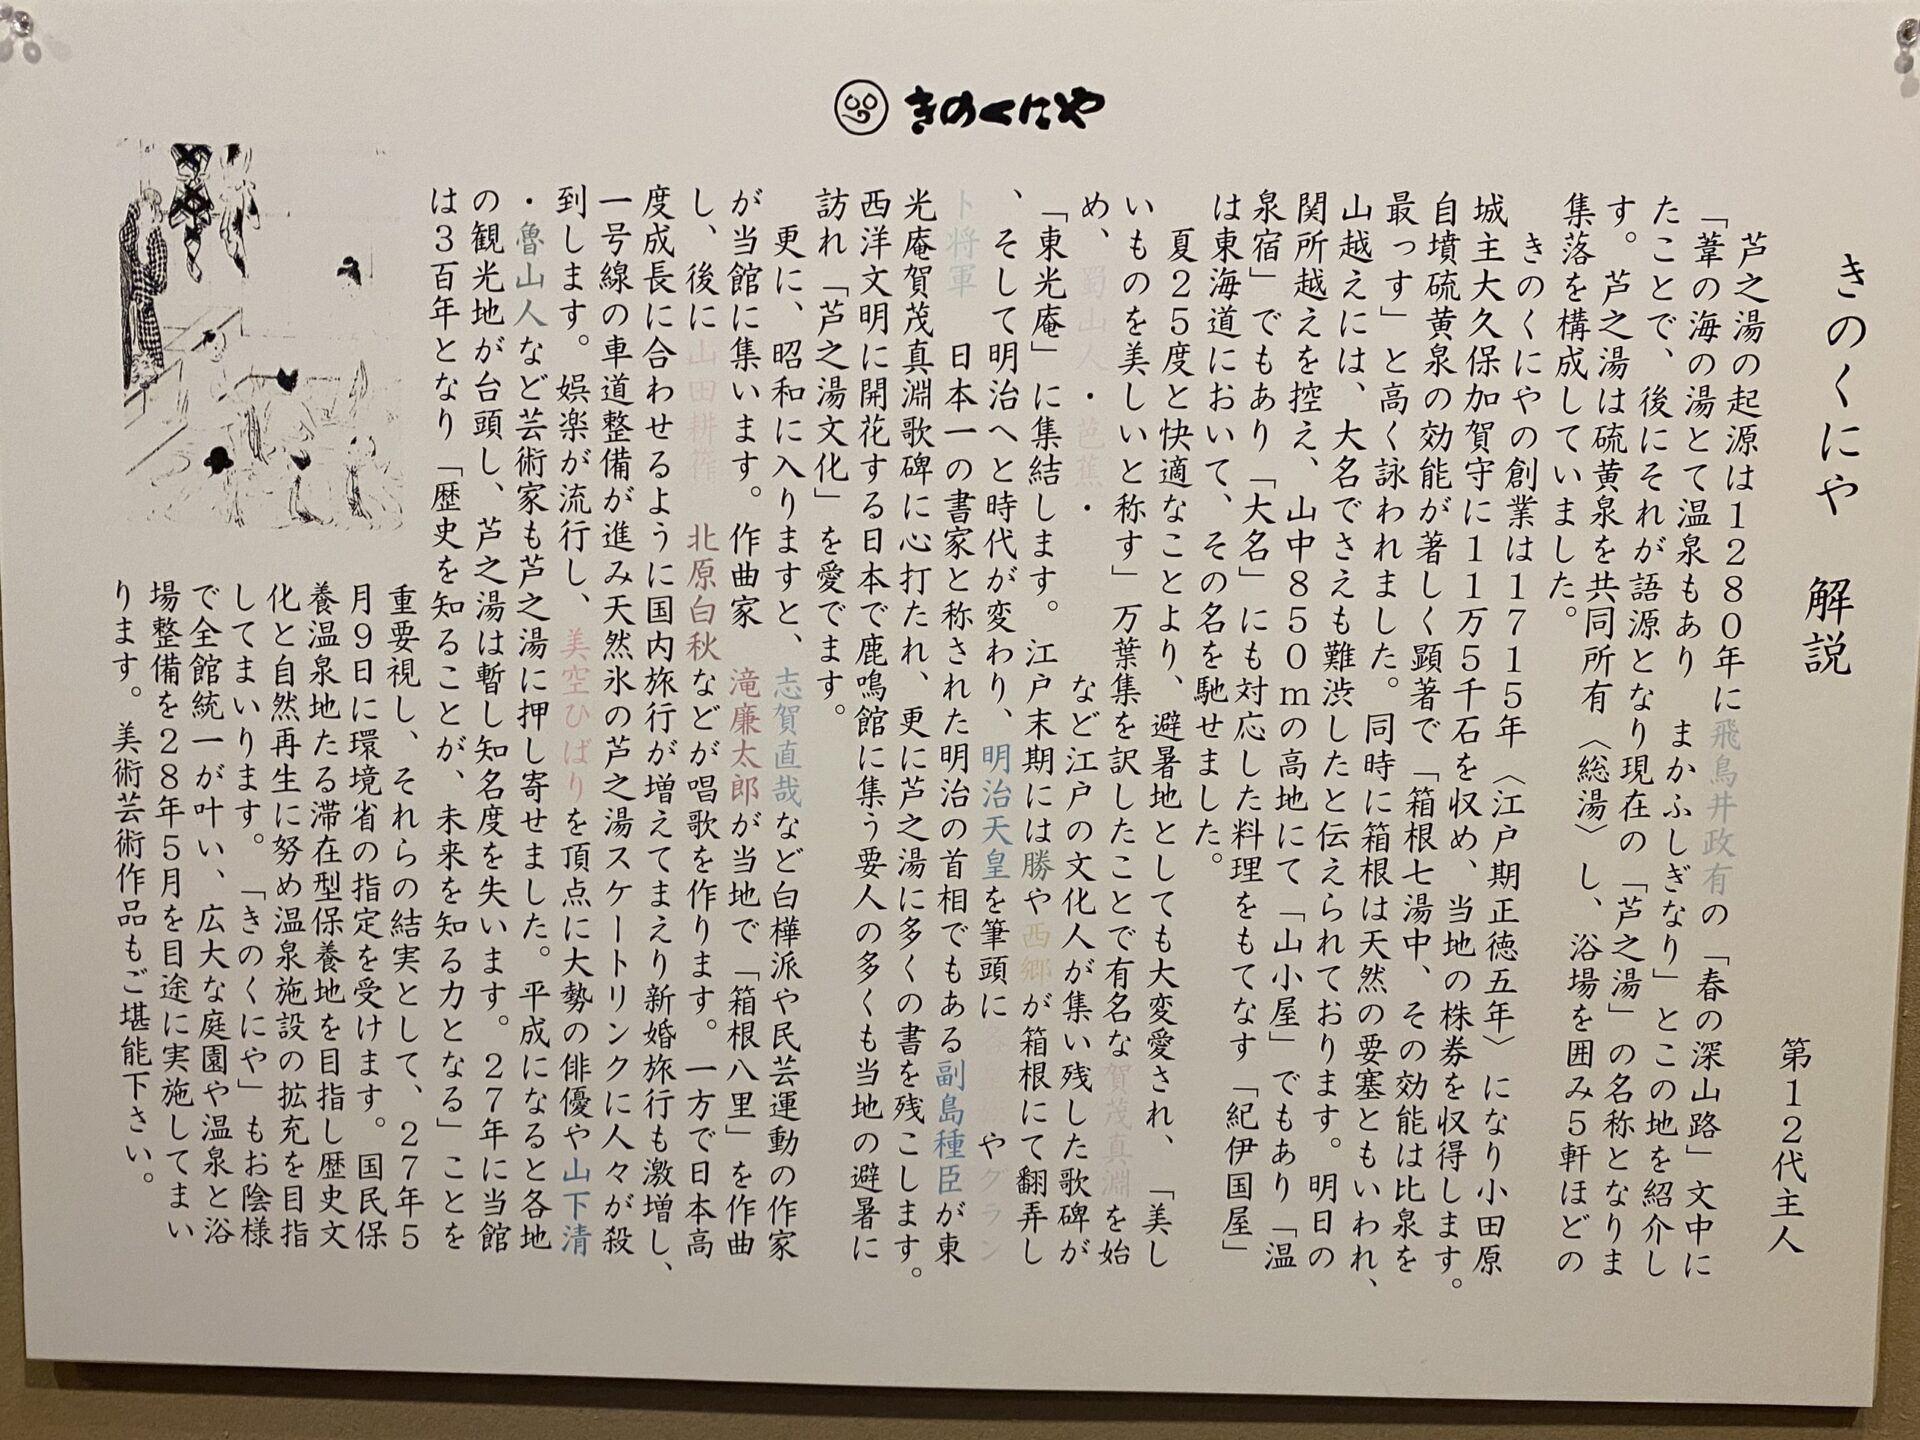 きのくにや
きのくにや 解説
第12代主人
芦之湯の起源は1280年に飛鳥井政有の「春の深山路」文中に
「葦の海の湯とて温泉もあり まかふしぎなり」とこの地を紹介し
たことで、後にそれが語源となり現在の「芦之湯」の名称となりま
す。芦之湯は硫黄泉を共同所有〈総湯〉し、浴場を囲み5軒ほどの
集落を構成していました。
きのくにやの創業は1715年〈江戸期正徳五年〉になり小田原
城主大久保加賀守に11万5千石を収め、当地の株券を収得します。
自墳硫黄泉の効能が著しく顕著で「箱根七湯中、その効能は比泉を
最っす」と高く詠われました。同時に箱根は天然の要塞ともいわれ、
山越えには、大名でさえも難渋したと伝えられております。明日の
関所越えを控え、山中850mの高地にて「山小屋」でもあり「温
泉宿」でもあり「大名」にも対応した料理をもてなす「紀伊国屋」
は東海道において、その名を馳せました。
夏25度と快適なことより、避暑地としても大変愛され、「美し
いものを美しいと称す」万葉集を訳したことで有名な賀茂真淵を始
め、蜀山人・芭蕉・ など江戸の文化人が集い残した歌碑が
「東光庵」に集結します。江戸末期には勝や西郷が箱根にて翻弄し
、そして明治へと時代が変わり、明治天皇を筆頭に やグラン
ト将軍 日本一の書家と称された明治の首相でもある副島種臣が東
光庵賀茂真淵歌碑に心打たれ、更に芦之湯に多くの書を残こします。
西洋文明に開花する日本で鹿鳴館に集う要人の多くも当地の避暑に
訪れ「芦之湯文化」を愛でます。
更に、昭和に入りますと、志賀直哉など白樺派や民芸運動の作家
が当館に集います。作曲家 滝廉太郎が当地で「箱根八里」を作曲
し、後に山田耕筰 北原白秋などが唱歌を作ります。一方で日本高
度成長に合わせるように国内旅行が増えてまえり新婚旅行も激増し、
一号線の車道整備が進み天然氷の芦之湯スケートリンクに人々が殺
到します。娯楽が流行し、美空ひばりを頂点に大勢の俳優や山下清
・魯山人など芸術家も芦之湯に押し寄せました。平成になると各地
の観光地が台頭し、芦之湯は暫し知名度を失います。27年に当館
は3百年となり「歴史を知ることが、未来を知る力となる」ことを
重要視し、それらの結実として、27年5
月9日に環境省の指定を受けます。国民保
養温泉地たる滞在型保養地を目指し歴史文
化と自然再生に努め温泉施設の拡充を目指
してまいります。「きのくにや」もお陰様
で全館統一が叶い、広大な庭園や温泉と浴
場整備を28年5月を目途に実施してまい
ります。美術芸術作品もご堪能下さい。